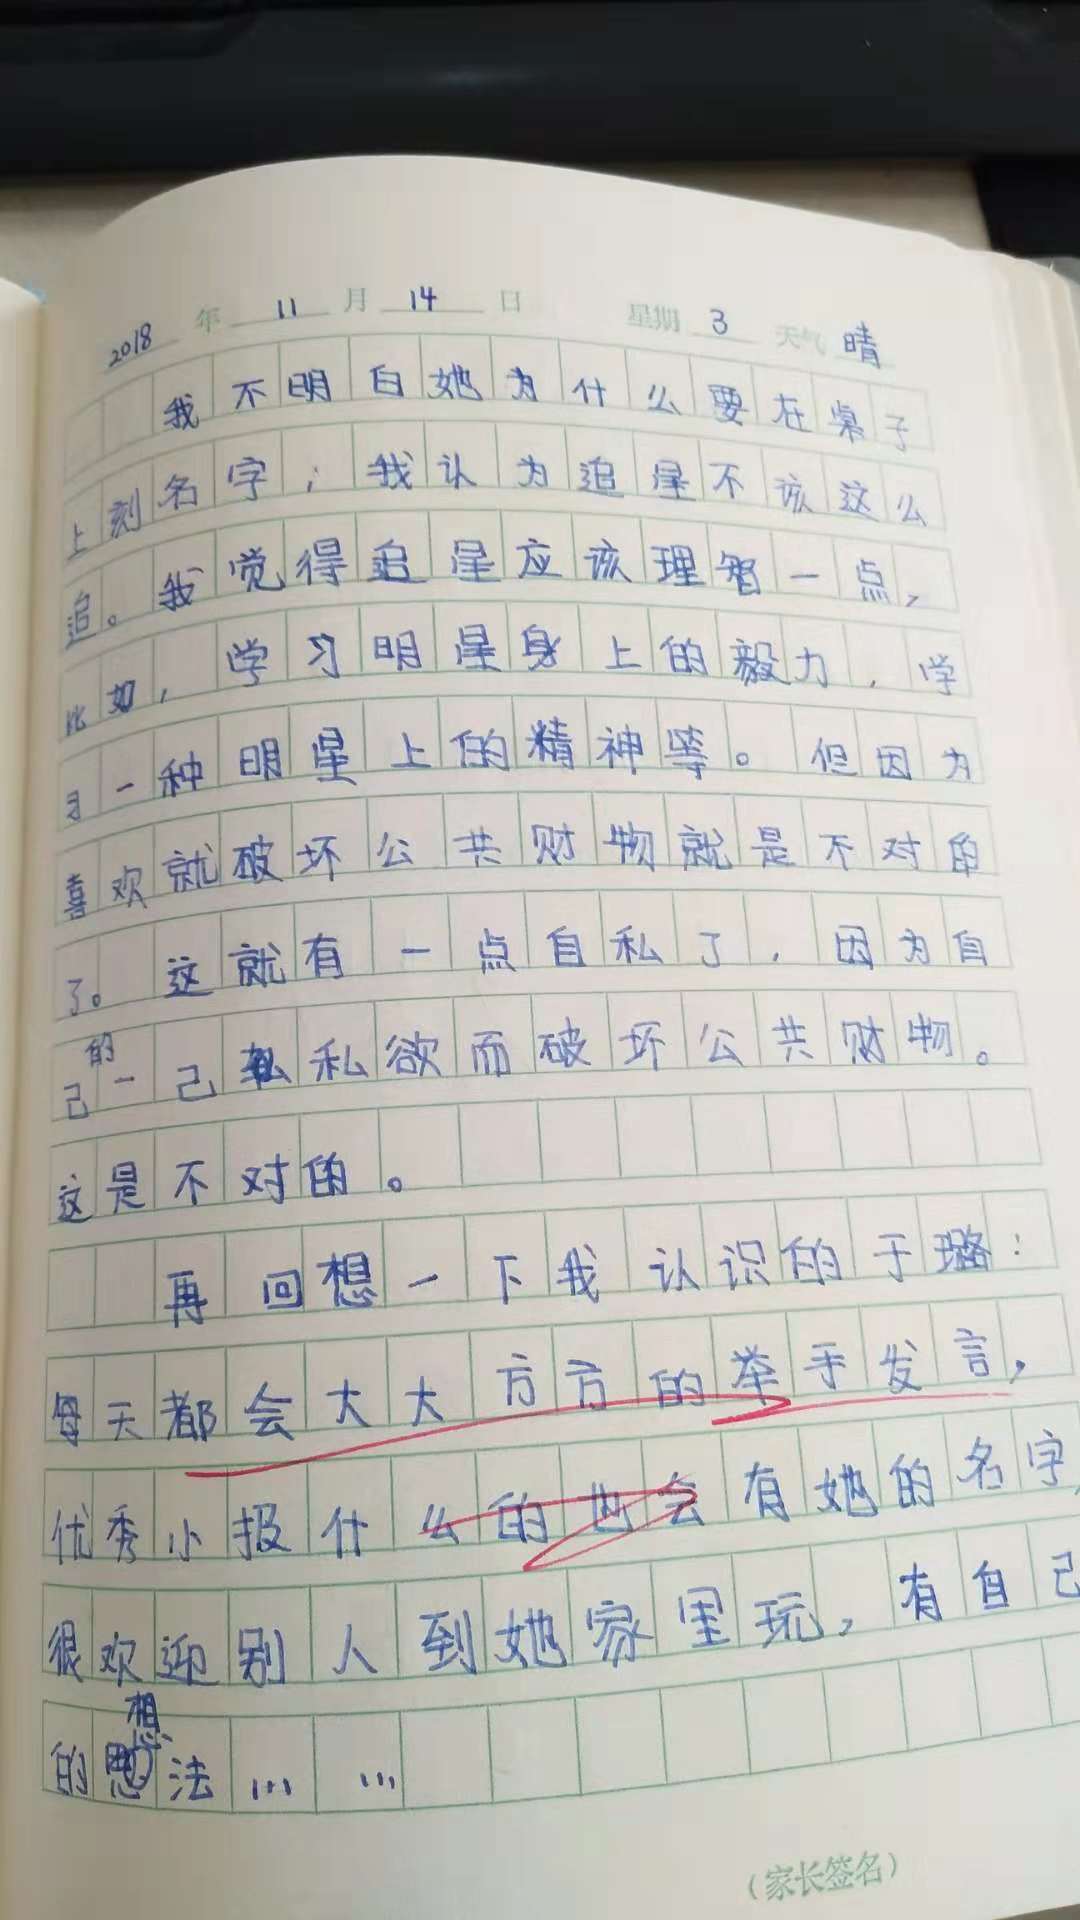 2018 年 11 月 14 日 星期 3 天气 晴
我不明白她为什么要在桌子
上刻名字；我认为追星不该这么
追。我觉得追星应该理智一点，
比如，学习明星身上的毅力，学
习一种明星上的精神等。但因为
喜欢就破坏公共财物就是不对的
了。这就有一点自私了，因为自
己的一己私欲而破坏公共财物。
这是不对的。
再回想一下我认识的于璐：
每天都会大大方方的举手发言，
优秀小报什么的也会有她的名字，
很欢迎别人到她家里玩，有自己
的想法……
（家长签名）